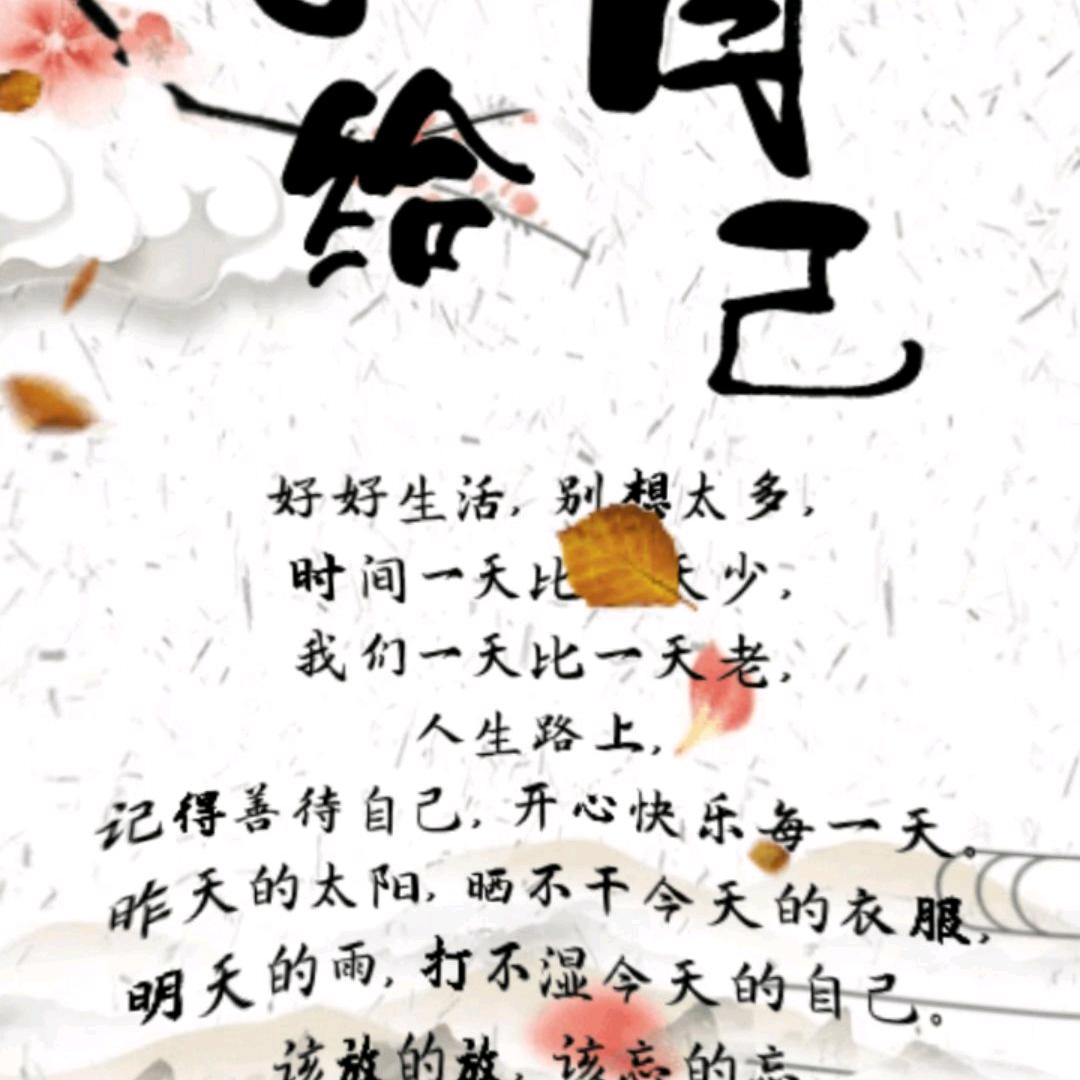 给
自己
好好生活，别想太多，
时间一天比天少，
我们一天比一天老，
人生路上，
记得善待自己，开心快乐每一天。
昨天的太阳，晒不干今天的衣服，
明天的雨，打不湿今天的自己。
该放的放，该忘的忘